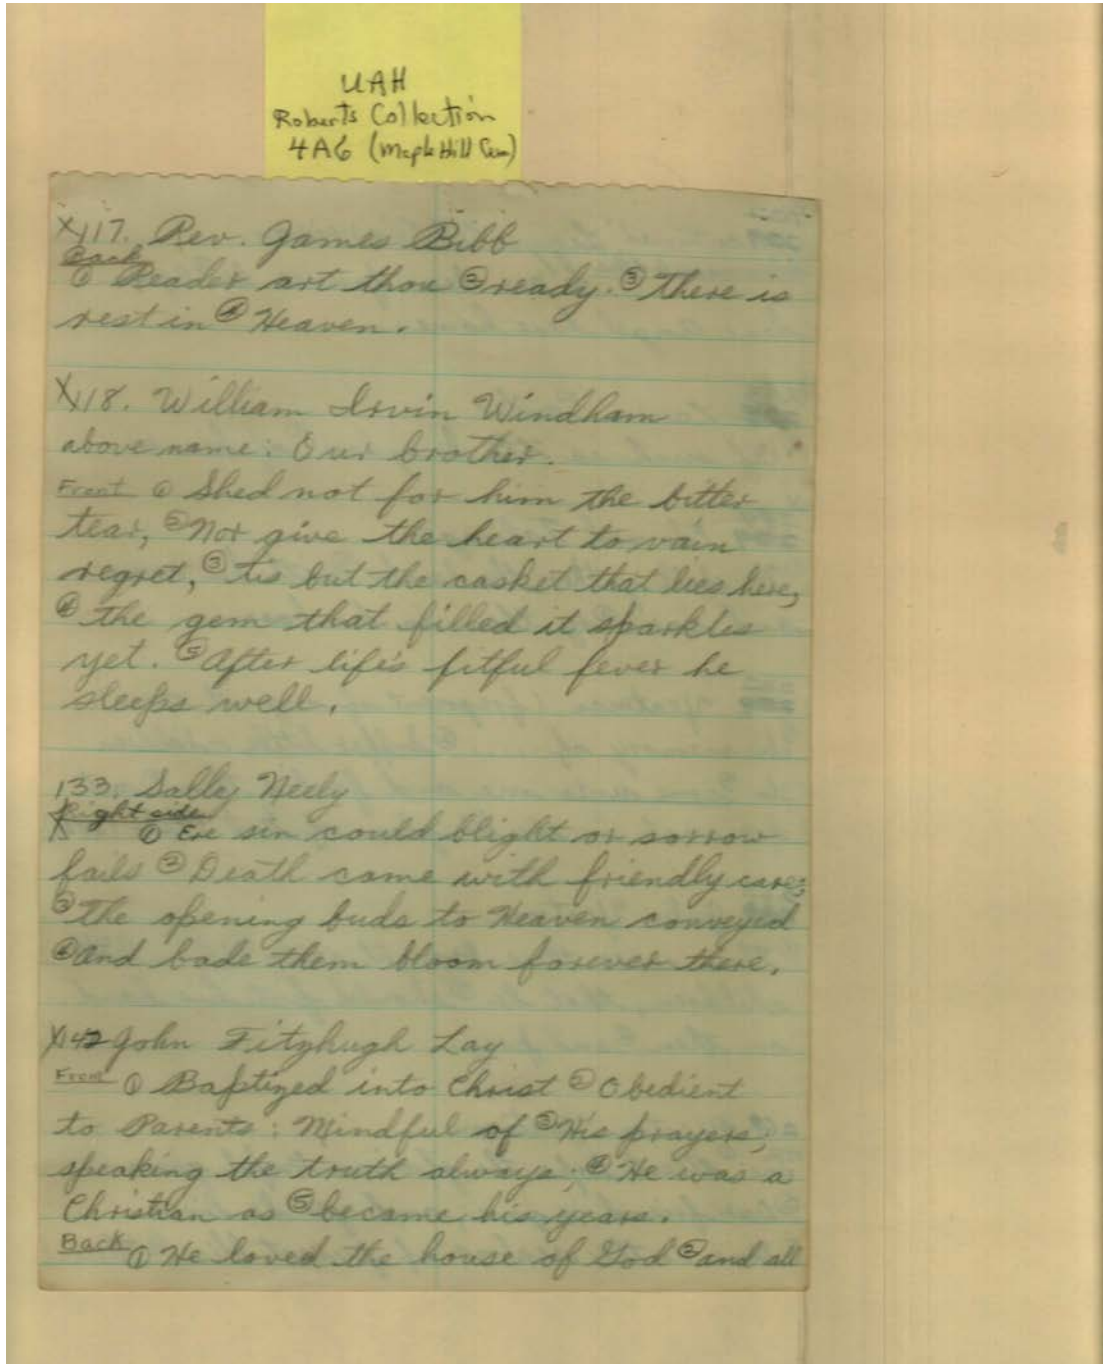 UAH
Roberts Collection
4A6 (Maple Hill Cem)
X117. Rev. James Bibb
Back
① Reader art thou ② ready. ③ There is
rest in ④ Heaven.
X118. William Irvin Windham
above name: Our brother.
Front ① Shed not for him the bitter
tear, ② Nor give the heart to vain
regret, ③ tis but the casket that lies here,
④ the gem that filled it sparkles
yet. ⑤ After life's fitful fever he
sleeps well.
133. Sally Neely
Right side
X ① Ere sin could blight or sorrow
fails ② Death came with friendly care;
③ The opening buds to Heaven conveyed
④ And bade them bloom forever there.
X142 John Fitzhugh Lay
Front ① Baptized into Christ ② Obedient
to Parents: Mindful of ③ His prayers;
speaking the truth always; ④ He was a
Christian as ⑤ became his years.
Back ① He loved the house of God ② and all